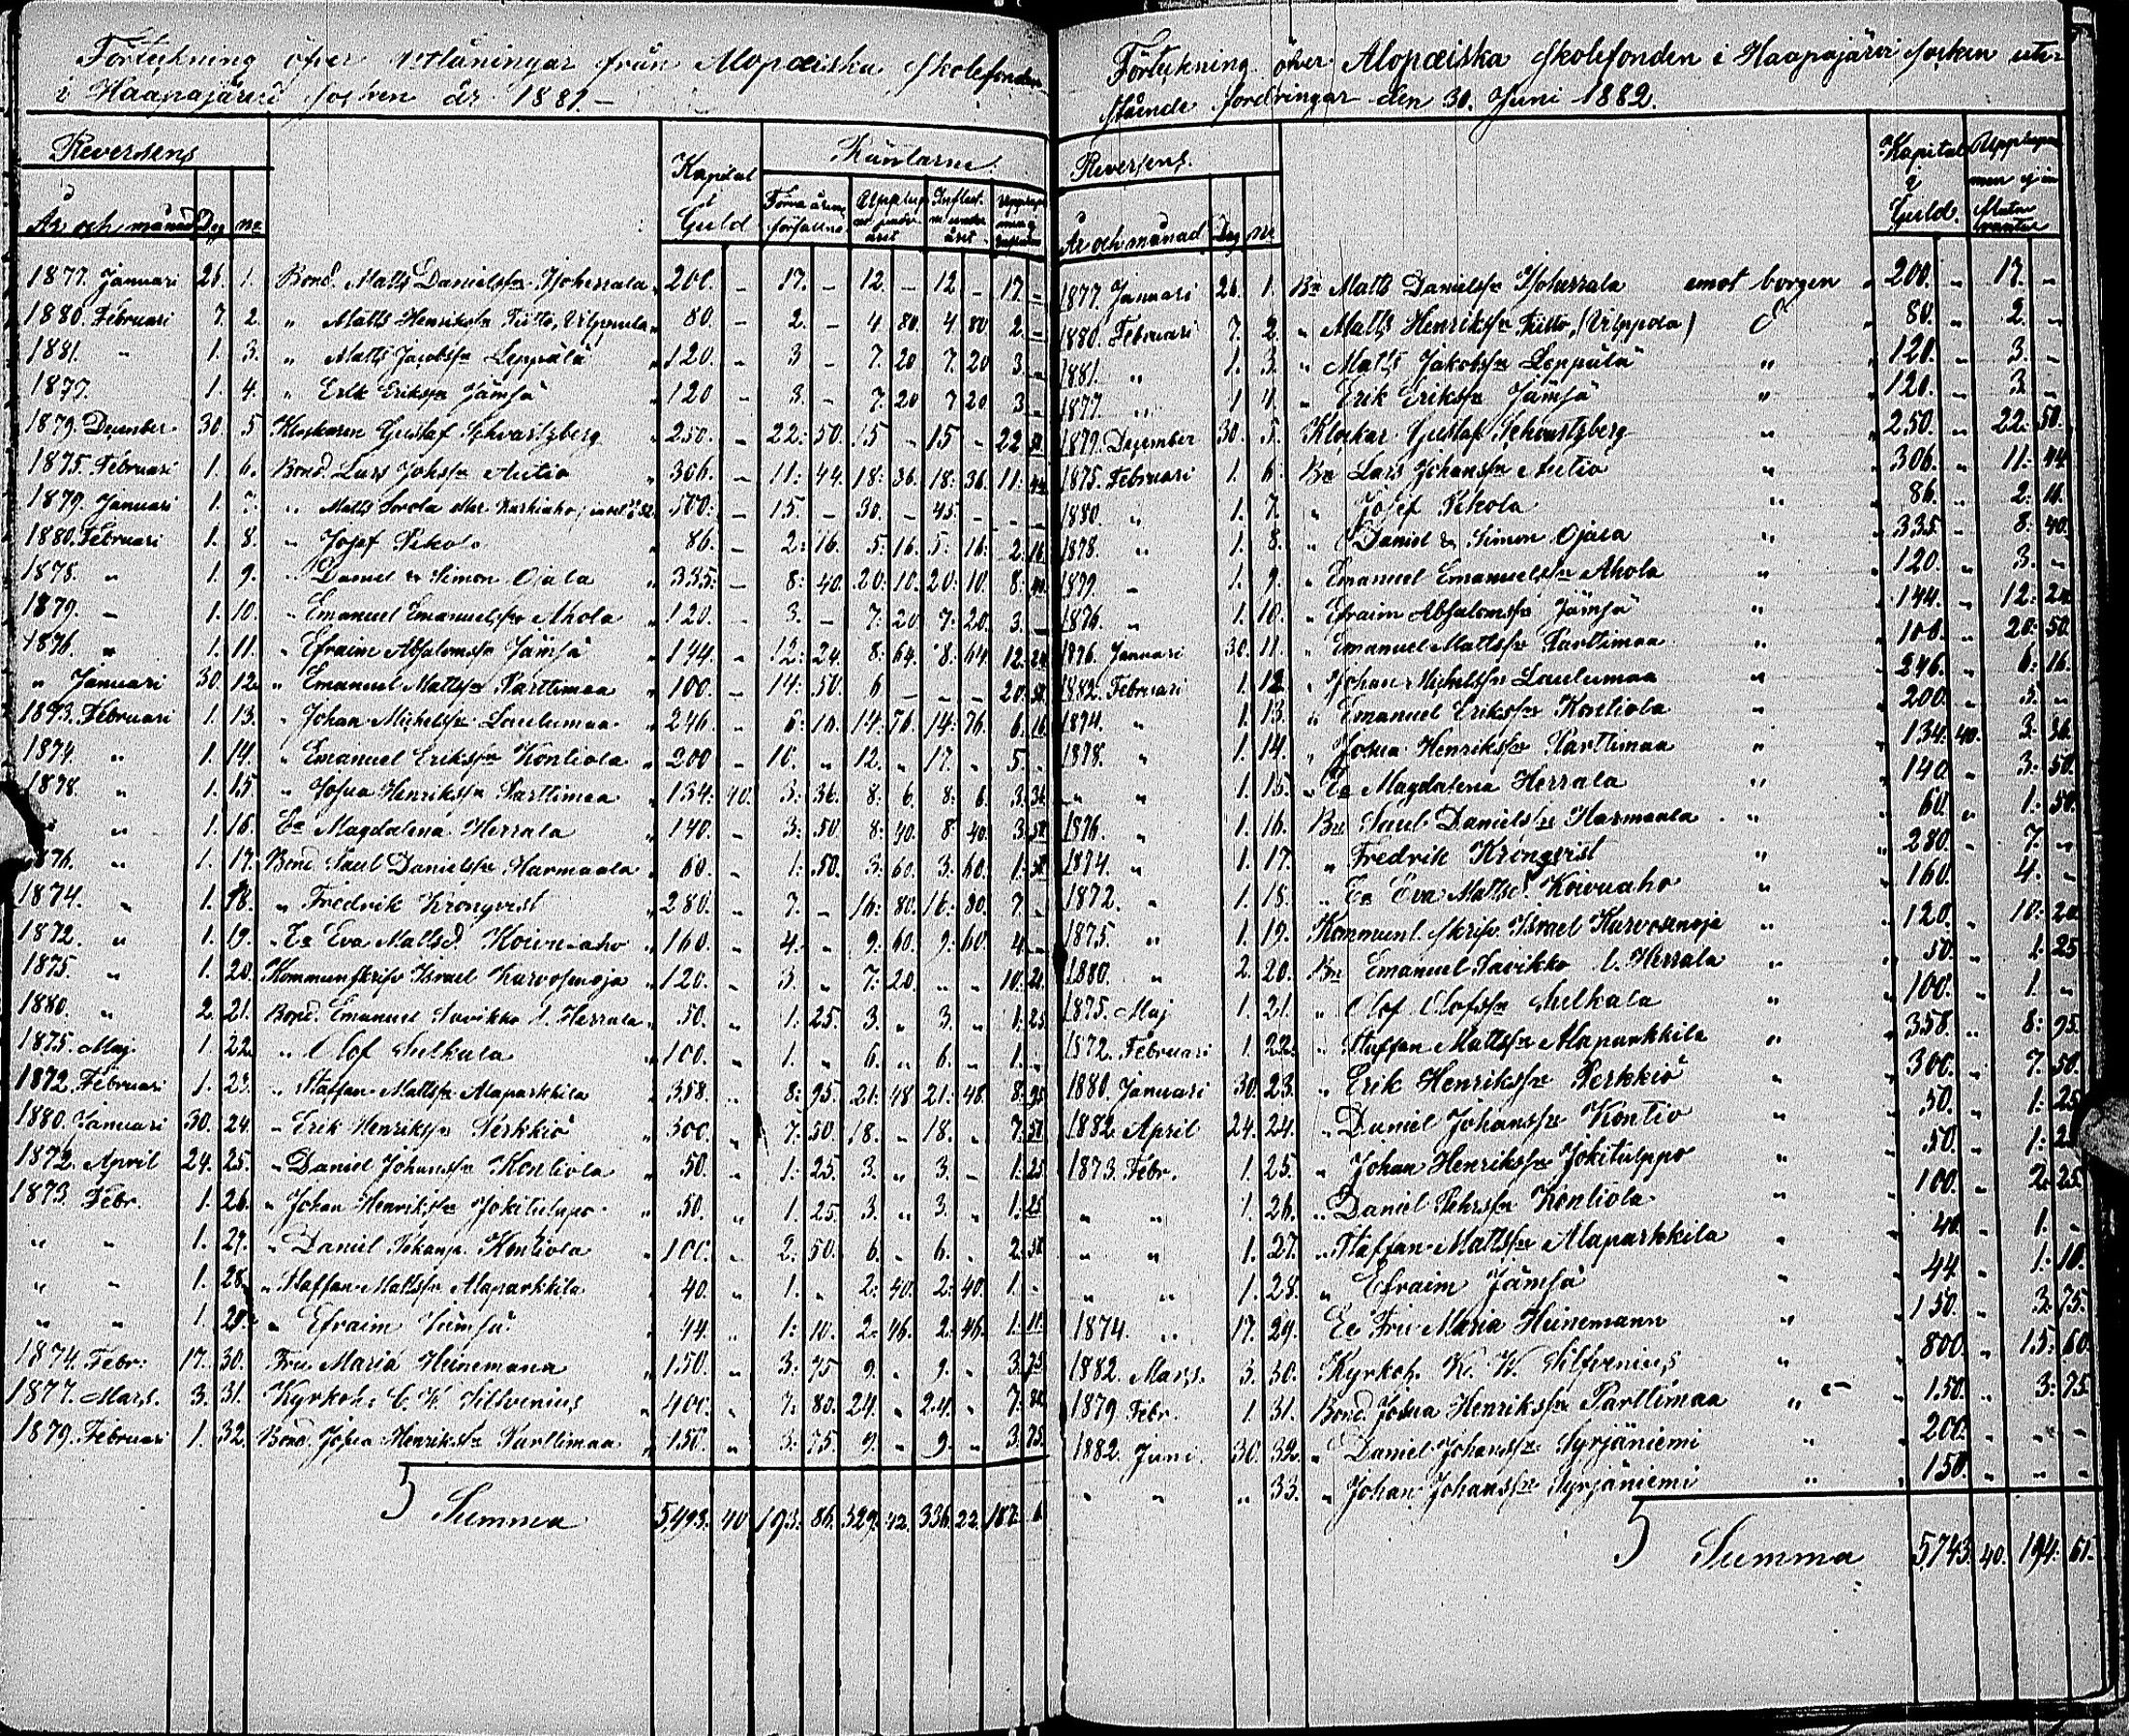 Förteckning öfver utlåningar från Alopæiska Skolefonden
i Haapajärvi socken år 1881.
Reversens
Kapital
Räntorne
År och månad Dag No
Guld
1877. Januari 26. 1. Bond. Matts Danielss:n Isoherrala 200. - 17. - 12. - 12. - 17. -
1880. Februari 7. 2. " Matts Henrikss:n Tiitto, Vilppula 80. - 2. - 4 80. 4 80 2. -
1881. " 1. 3. " Matts Jacobss:n Leppälä 120. - 3 - 7. 20 7. 20 3. -
1877. 1. 4. " Erik Erikss:n Jämsä 120 - 3. - 7. 20 7 20 3 -
1879. December 30. 5 Klockaren Gustaf Schvartzberg 250. - 22: 50. 15 - 15 - 22 50
1875. Februari 1. 6. Bond. Lars Johss:n Autio 306. - 11: 44. 18: 36. 18: 36. 11: 44
1879. Januari 1. 7. " Matts Sorola 500: - 15. - 30. - 45. - - -
1880. Februari 1. 8. " Josef Pekola 86. - 2: 16. 5: 16. 5: 16. 2: 16
1878. " 1. 9. " Daniel & Simon Ojala 335: - 8: 40. 20: 10. 20: 10. 8: 40
1879. - 1. 10. " Emanuel Emanuelss:n Ahola 120. - 3. - 7: 20 7: 20. 3. -
1876. " 1. 11. " Efraim Absalomss:n Jämsä 144. - 12: 24. 8: 64. 8: 64. 12: 24
" Januari 30. 12. " Emanuel Mattss:n Parttimaa 100. - 14: 50. 6 - - - 20: 50
1873. Februari 1. 13. " Johan Michelss:n Laulumaa 246. - 6: 16. 14: 76. 14: 76. 6: 16
1874. " 1. 14. " Emanuel Erikss:n Kontiola 200 - 10. " 12. " 17. " 5. "
1878. " 1. 15 " Josua Henrikss:n Parttimaa 134: 40. 3: 36. 8: 6. 8: 6. 3: 36
" 1. 16. E:a Magdalena Herrala 140. - 3: 50. 8: 40. 8: 40. 3: 50
1876. " 1. 17. Bond. Saul Danielss:n Harmaala 60. " 1: 50. 3: 60. 3: 60. 1: 50
1874. " 1. 18. " Fredrik Kronqvist 280. " 7. - 16: 80. 16: 80. 7. -
1872. " 1. 19. " E:a Eva Mattsd. Koivuaho 160. " 4. " 9: 60. 9: 60. 4. -
1875. " 1. 20. Kommunskrifv. Israel Karvosenoja 120. " 3. " 7: 20. " " 10: 20
1880. " 2. 21. Bond. Emanuel Savikko l. Herrala 50. " 1: 25. 3. " 3. " 1: 25
1875. Maj 1. 22 " Olof Sulkala 100. " 1. " 6. " 6. " 1. "
1872. Februari 1. 23. " Staffan Mattss:n Alaparkkila 358. " 8: 95. 21: 48. 21: 48. 8: 95
1880. Januari 30. 24. " Erik Henrikss:n Perkkiö 300. " 7: 50. 18. " 18. " 7: 50
1872. April 24. 25. " Daniel Johanss:n Kontiola 50. " 1: 25. 3. " 3. - 1: 25
1873 Febr. 1. 26. " Johan Henrikss:n Jokitulppo 50. " 1: 25. 3. " 3. " 1: 25
" " 1. 27. " Daniel Kontiola 100. " 2: 50. 6. " 6. " 2: 50
" " 1. 28. " Staffan Mattss:n Alaparkkila 40. " 1. " 2: 40. 2: 40. 1. "
" " 1. 29. " Efraim Jämsä 44. " 1: 10. 2: 46. 2: 46. 1: 10
1874. Febr. 17. 30. Fru Maria Heinemann 150. " 3: 75 9. " 9. " 3: 75
1877. Mars. 3. 31. Kyrkoh. C. W. Silfvenius 400. " 7: 80. 24. " 24. " 7: 80
1879. Februari 1. 32. Bond. Josua Henrikss:n Parttimaa 150. " 3: 75 9. " 9. " 3: 75
Summa 5,493: 40 193: 86. 329: 42. 336: 22. 187: 6
Förteckning öfver Alopæiska Skolefonden i Haapajärvi socken ute-
stående fordringar den 30. Juni 1882.
Reversens.
År och månad Dag No
Kapital
i
Guld.
1877. Januari 26. 1. B:n Matts Danielss:n Isoherrala emot borgen 200. - 17. -
1880. Februari 7. 2. " Matts Henrikss:n Tiitto, (Vilppola) 80. " 2. "
1881. " 1. 3. " Matts Jakobss:n Leppälä " 120. " 3. "
1877. " 1 4. " Erik Erikss:n Jämsä " 120. " 3. "
1879. December 30. 5. Klockar. Gustaf Schvartzberg " 250. " 22: 50.
1875. Februari 1. 6. B:n Lars Johanss:n Autio " 306. " 11: 44
1880. " 1. 7. " Josef Pekola " 86. " 2: 16.
1878. " 1. 8. " Daniel & Simon Ojala " 335. " 8: 40.
1879. - 1. 9. " Emanuel Emanuelss:n Ahola " 120. " 3. "
1876. " 1. 10. " Efraim Absalomss:n Jämsä " 144. " 12: 24
1876. Januari 30. 11. " Emanuel Mattss:n Parttimaa " 100. " 20: 50.
1882. Februari 1. 12. " Johan Michelss:n Laulumaa " 246. " 6: 16.
1874. " 1. 13. " Emanuel Erikss:n Kontiola " 200. " 5. "
1878. " 1. 14. " Josua Henrikss:n Parttimaa " 134: 40. 3: 36.
" " 1. 15. " E:a Magdalena Herrala " 140. " 3: 50.
1876. " 1. 16. B:n Saul Danielss:n Harmaala " 60. " 1: 50.
1874. " 1. 17. " Fredrik Kronqvist " 280. " 7. "
1872. " 1. 18. " E:a Eva Mattsd. Koivuaho " 160. " 4. "
1875. " 1. 19. Kommunl. skrifv. Israel Karvosenoja " 120. " 10: 20
1880. " 2. 20. B:n Emanuel Savikko l. Herrala " 50. " 1: 25
1875. Maj 1. 21. " Olof Olofss:n Sulkala " 100. " 1. "
1872. Februari 1. 22. " Staffan Mattss:n Alaparkkila " 358. " 8: 95.
1880. Januari 30. 23. " Erik Henrikss:n Perkkiö " 300. " 7: 50.
1882. April 24. 24. " Daniel Johanss:n Kontio " 50. " 1: 25
1873. Febr. 1. 25. " Johan Henrikss:n Jokitulppo " 50. " 1: 25
" " 1. 26. " Daniel Pehrss:n Kontiola " 100. " 2: 25.
" " 1. 27. " Staffan Mattss:n Alaparkkila " 40. " 1. "
" " 1. 28. " Efraim Jämsä " 44. " 1: 10.
1874. " 17. 29. E:e Fru Maria Heinemann " 150. " 3: 75.
1882. Mars. 3. 30. Kyrkoh. K. W. Silfvenius " 800. " 15: 60.
1879 Febr. 1. 31. Bond. Josua Henrikss:n Parttimaa " 150. " 3: 75
1882. Juni. 30. 32. " Daniel Johanss:n Syrjäniemi " 200. " " "
" " " 33. " Johan Johanss:n Syrjäniemi " 150. " " "
Summa 5743. 40. 194: 61.